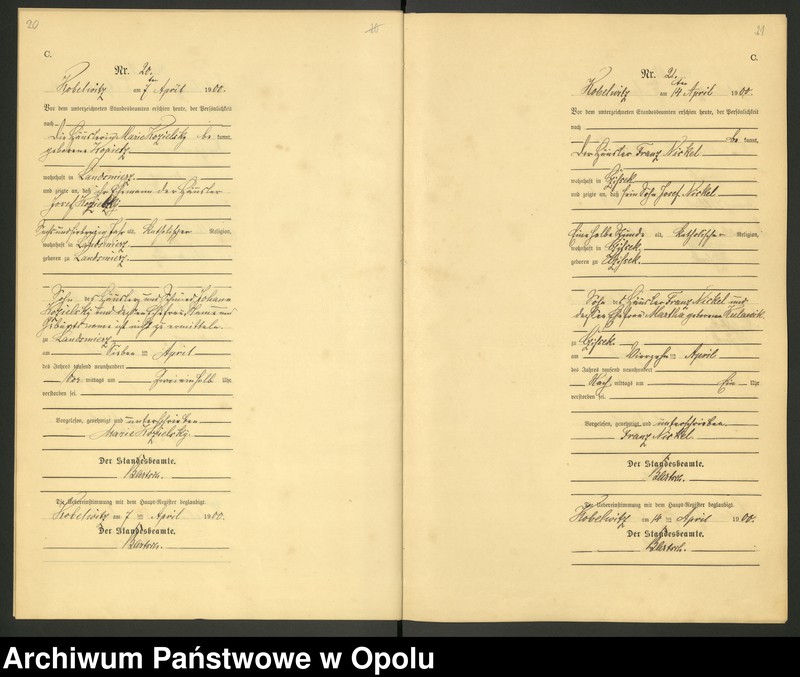 20
C.
Nr. 20.
Kobelwitz am 7ten April 1900.
Vor dem unterzeichneten Standesbeamten erschien heute, der Persönlichkeit
nach
die Häuslerin Marie Kozielsky be kannt,
geborene
wohnhaft in Landsmierz
und zeigte an, daß ihr Ehemann der Häusler
Josef Kozielsky
Jahr alt, katholischer Religion,
wohnhaft in Landsmierz
geboren zu Landsmierz
Sohn des Häuslers und Schmied Johann
Kozielsky und dessen Ehefrau Name und
Geburtsname ist nicht zu ermitteln
zu Landsmierz
am Sieben = April
des Jahres tausend neunhundert
Vor mittags um Uhr
verstorben sei.
Vorgelesen, genehmigt und unterschrieben
Marie Kozielsky
Der Standesbeamte.
Die Uebereinstimmung mit dem Haupt-Register beglaubigt.
Kobelwitz am 7 = April 1900.
Der Standesbeamte.
21
C.
Nr. 21.
Kobelwitz am 14ten April 1900.
Vor dem unterzeichneten Standesbeamten erschien heute, der Persönlichkeit
nach
be kannt,
der Häusler Franz Nickel
wohnhaft in
und zeigte an, daß sein Sohn Josef Nickel
Eine halbe Stunde alt, katholischer Religion,
wohnhaft in
geboren zu
Sohn des Häusler Franz Nickel und
dessen Ehefrau Martha geborene
zu
am Vierzehn = April
des Jahres tausend neunhundert
Nach mittags um Ein Uhr
verstorben sei.
Vorgelesen, genehmigt und unterschrieben
Franz Nickel
Der Standesbeamte.
Die Uebereinstimmung mit dem Haupt-Register beglaubigt.
Kobelwitz am 14 = April 1900.
Der Standesbeamte.
Archiwum Państwowe w Opolu